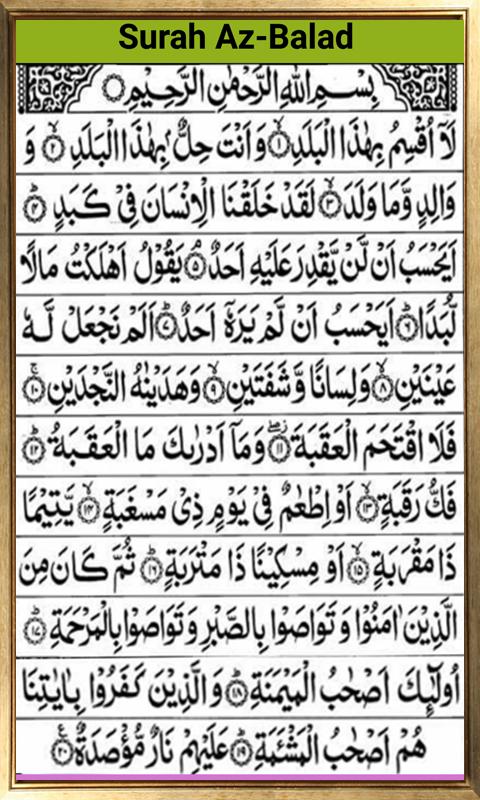 Surah Az-Balad
بِسْمِ اللهِ الرَّحْمٰنِ الرَّحِيْمِ
لَآ اُقْسِمُ بِهٰذَا الْبَلَدِ ۝۱ وَاَنْتَ حِلٌّۢ بِهٰذَا الْبَلَدِ ۝۲ وَ
وَالِدٍ وَّمَا وَلَدَ ۝۳ لَقَدْ خَلَقْنَا الْاِنْسَانَ فِيْ كَبَدٍ ۝۴
اَيَحْسَبُ اَنْ لَّنْ يَّقْدِرَ عَلَيْهِ اَحَدٌ ۝۵ يَقُوْلُ اَهْلَكْتُ مَالًا
لُّبَدًا ۝۶ اَيَحْسَبُ اَنْ لَّمْ يَرَهٗٓ اَحَدٌ ۝۷ اَلَمْ نَجْعَلْ لَّهٗ
عَيْنَيْنِ ۝۸ وَلِسَانًا وَّشَفَتَيْنِ ۝۹ وَهَدَيْنٰهُ النَّجْدَيْنِ ۝۱۰
فَلَا اقْتَحَمَ الْعَقَبَةَ ۝۱۱ وَمَآ اَدْرٰىكَ مَا الْعَقَبَةُ ۝۱۲
فَكُّ رَقَبَةٍ ۝۱۳ اَوْ اِطْعٰمٌ فِيْ يَوْمٍ ذِيْ مَسْغَبَةٍ ۝۱۴ يَّتِيْمًا
ذَا مَقْرَبَةٍ ۝۱۵ اَوْ مِسْكِيْنًا ذَا مَتْرَبَةٍ ۝۱۶ ثُمَّ كَانَ مِنَ
الَّذِيْنَ اٰمَنُوْا وَتَوَاصَوْا بِالصَّبْرِ وَتَوَاصَوْا بِالْمَرْحَمَةِ ۝۱۷
اُولٰٓئِكَ اَصْحٰبُ الْمَيْمَنَةِ ۝۱۸ وَالَّذِيْنَ كَفَرُوْا بِاٰيٰتِنَا
هُمْ اَصْحٰبُ الْمَشْئَمَةِ ۝۱۹ عَلَيْهِمْ نَارٌ مُّؤْصَدَةٌ ۝۲۰